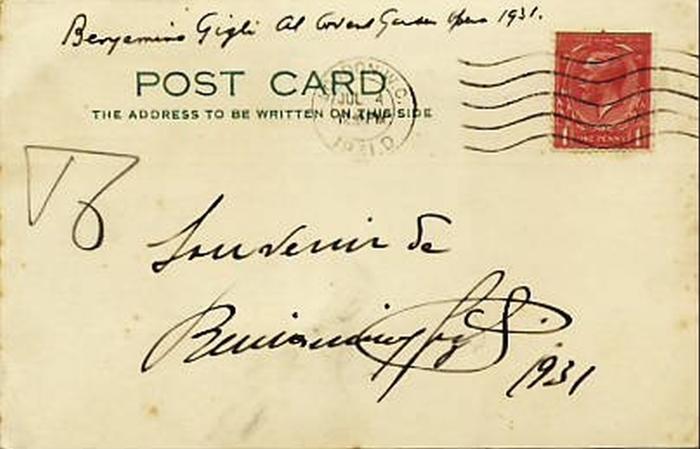 Benyamino Gigli at Covent Garden Opera 1931.
POST CARD
THE ADDRESS TO BE WRITTEN ON THIS SIDE
LONDON. W.C.
JUL 4
1931. D
ONE PENNY
Souvenir de
Beniamino Gigli
1931